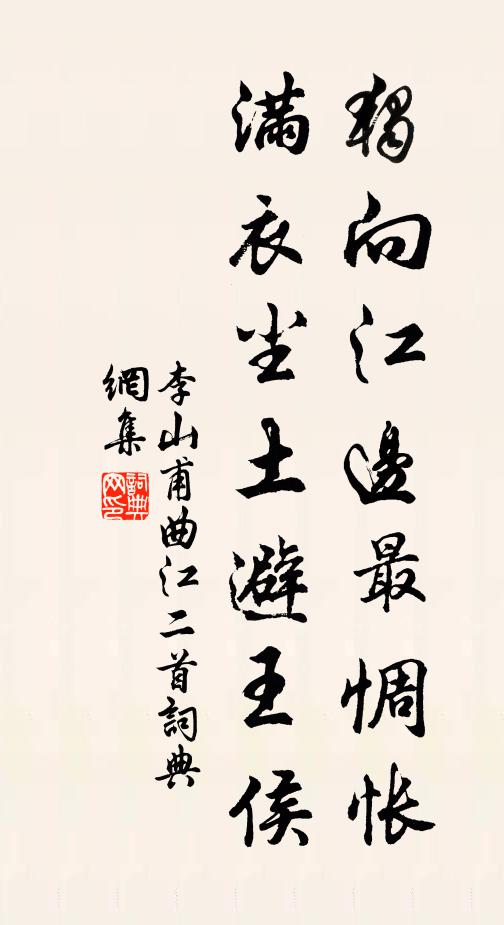 獨向江邊最惆悵
滿衣尘土避王侯
李山甫曲江二首詞典
網集
詞典
网印